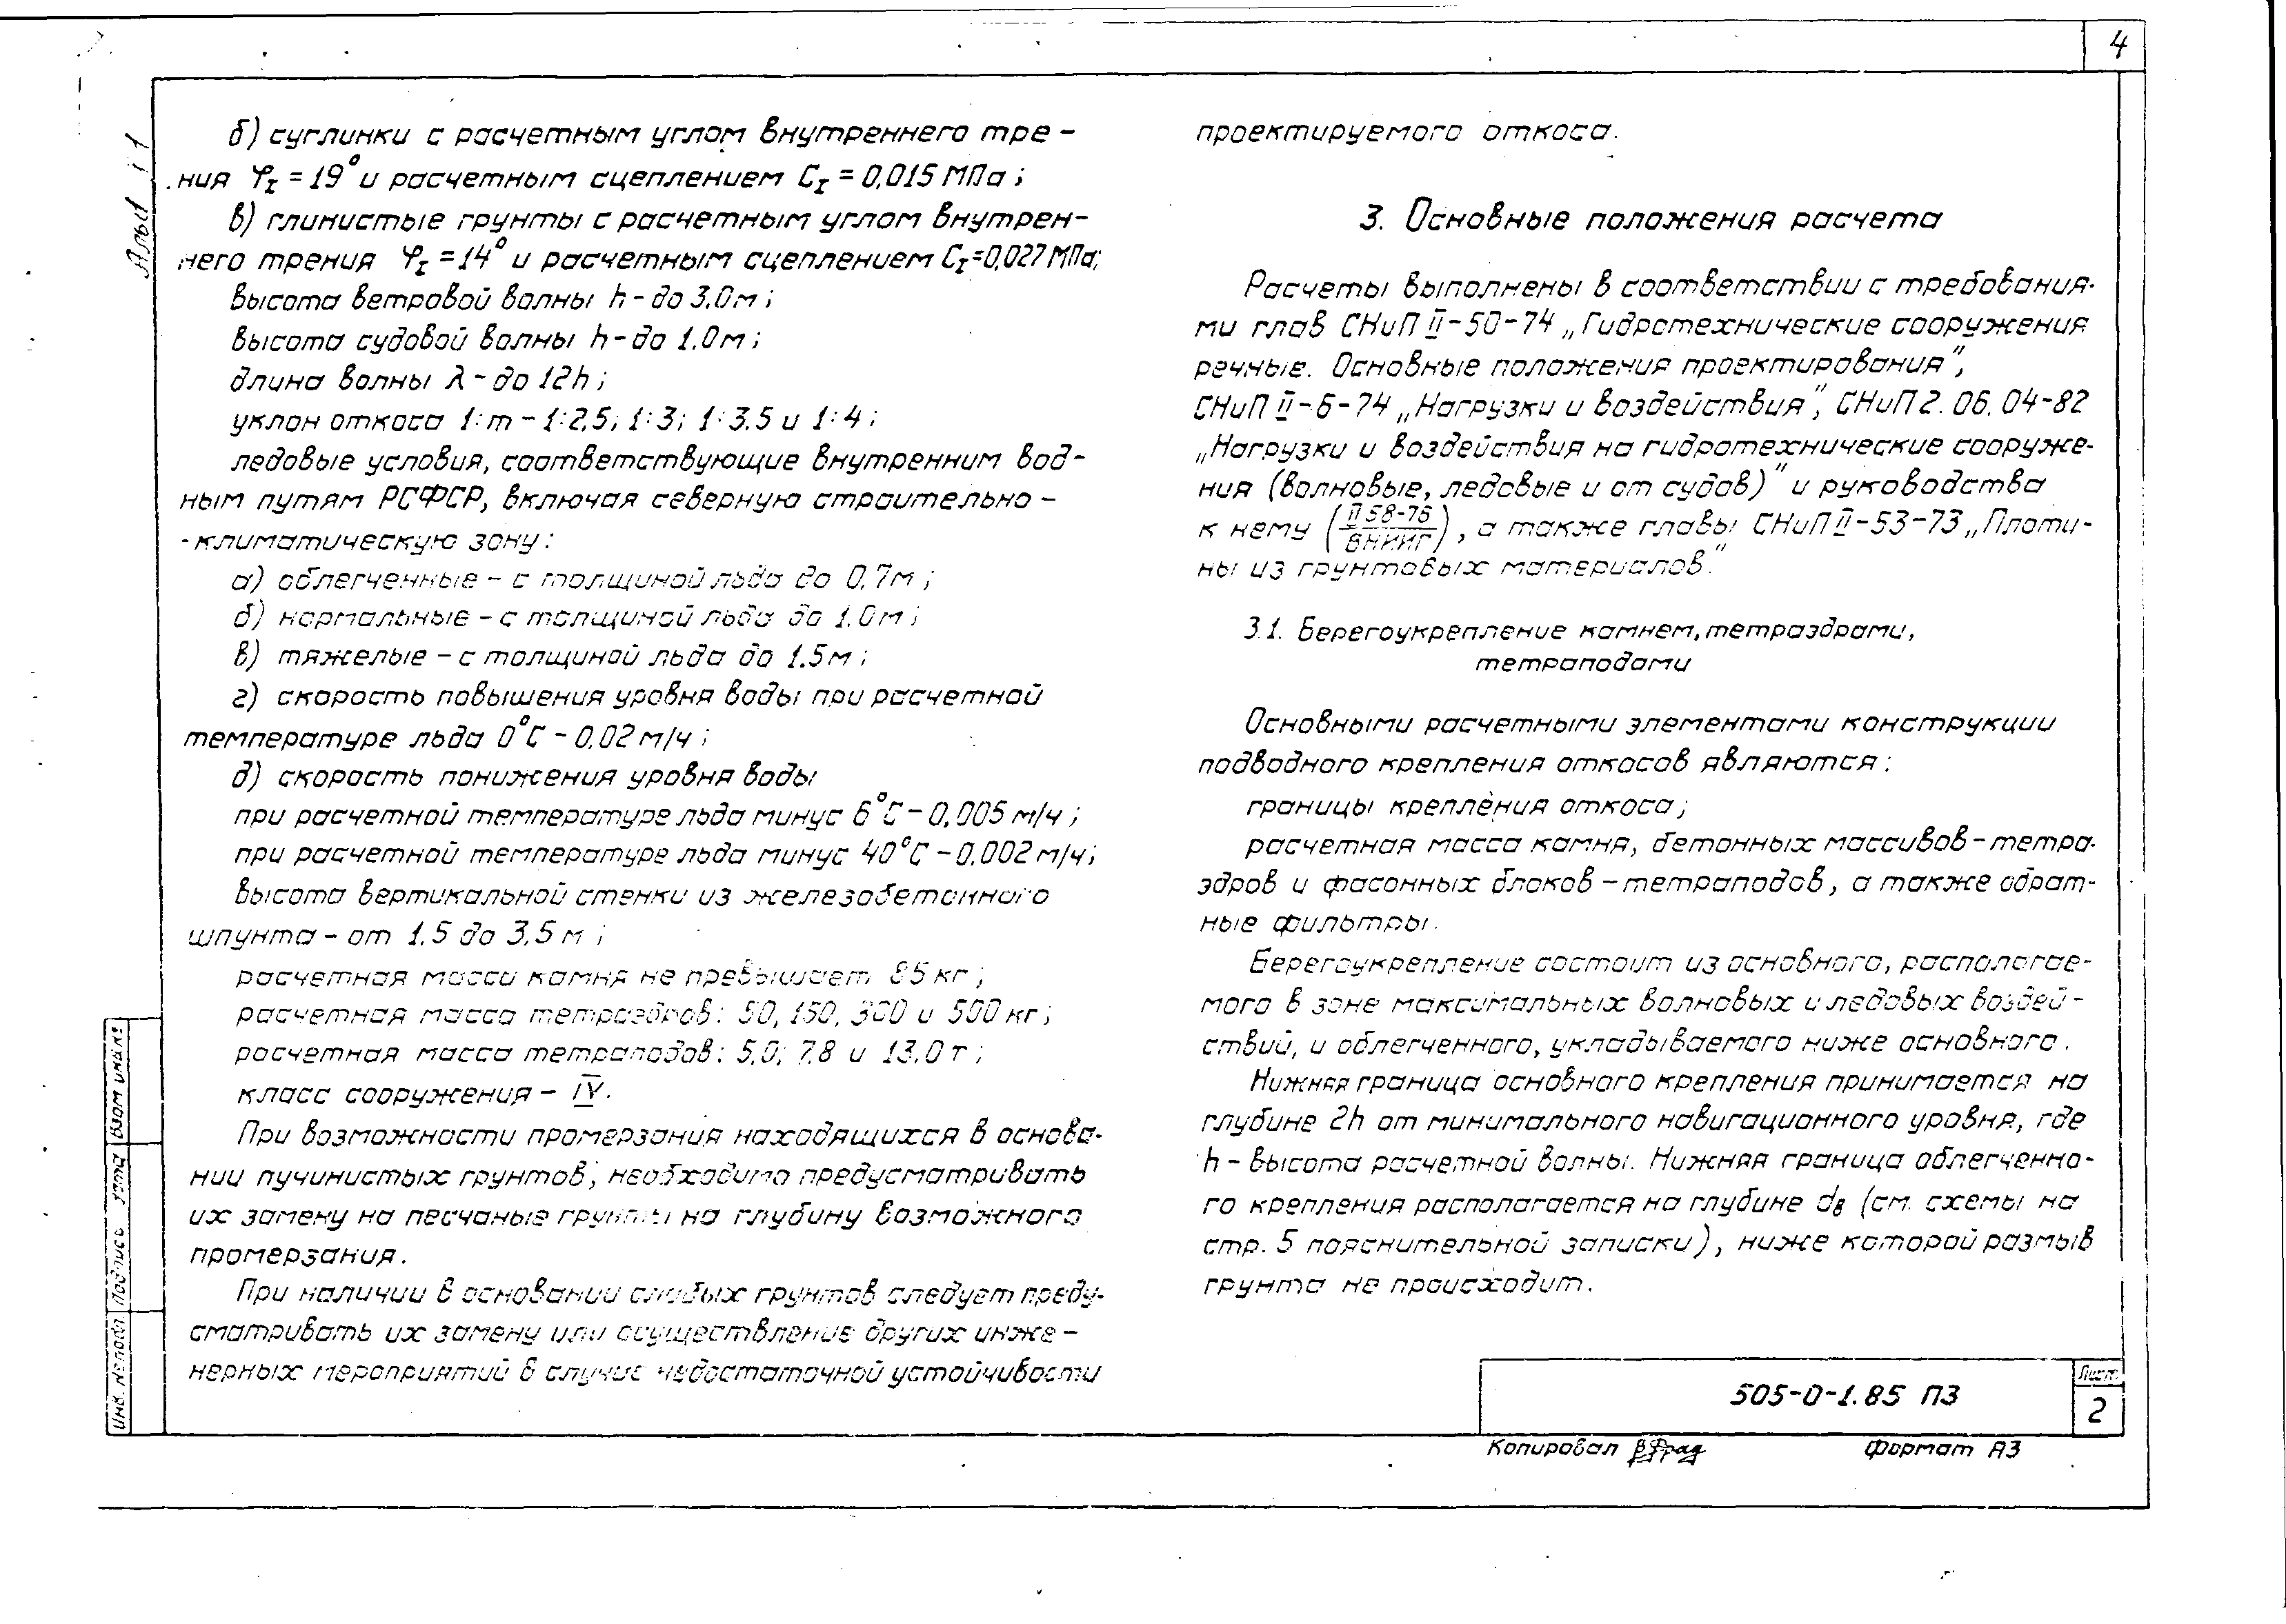 4
Альб 1
б) суглинки с расчетным углом внутреннего тре-
ния φI = 19° и расчетным сцеплением CI = 0,015 МПа;
в) глинистые грунты с расчетным углом внутрен-
него трения φI = 14° и расчетным сцеплением CI = 0,027 МПа;
высота ветровой волны h - до 3.0м;
высота судовой волны h - до 1.0м;
длина волны λ - до 12h;
уклон откоса 1:m - 1:2,5; 1:3; 1:3.5 и 1:4;
ледовые условия, соответствующие внутренним вод-
ным путям РСФСР, включая северную строительно-
-климатическую зону:
а) облегченные - с толщиной льда до 0,7м;
б) нормальные - с толщиной льда до 1.0м;
в) тяжелые - с толщиной льда до 1.5м;
г) скорость повышения уровня воды при расчетной
температуре льда 0°С - 0.02 м/ч;
д) скорость понижения уровня воды
при расчетной температуре льда минус 6°С - 0,005 м/ч;
при расчетной температуре льда минус 40°С - 0,002 м/ч;
высота вертикальной стенки из железобетонного
шпунта - от 1.5 до 3,5 м;
расчетная масса камня не превышает 85 кг;
расчетная масса тетраэдров: 50, 150, 300 и 500 кг;
расчетная масса тетраподов: 5,0; 7,8 и 13.0 т;
класс сооружения - IV.
При возможности промерзания находящихся в основа-
нии пучинистых грунтов, необходимо предусматривать
их замену на песчаные грунты на глубину возможного
промерзания.
При наличии в основании слабых грунтов следует преду-
сматривать их замену или осуществление других инже-
нерных мероприятий в случае недостаточной устойчивости
проектируемого откоса.
3. Основные положения расчета
Расчеты выполнены в соответствии с требования-
ми глав СНиП II-50-74 „Гидротехнические сооружения
речные. Основные положения проектирования",
СНиП II-6-74 „Нагрузки и воздействия", СНиП 2.06.04-82
„Нагрузки и воздействия на гидротехнические сооруже-
ния (волновые, ледовые и от судов)" и руководства
к нему (П 58-76 / ВНИИГ), а также главы СНиП II-53-73 „Плоти-
ны из грунтовых материалов."
3.1. Берегоукрепление камнем, тетраэдрами,
тетраподами
Основными расчетными элементами конструкции
подводного крепления откосов являются:
границы крепления откоса;
расчетная масса камня, бетонных массивов-тетра-
эдров и фасонных блоков-тетраподов, а также обрат-
ные фильтры.
Берегоукрепление состоит из основного, располагае-
мого в зоне максимальных волновых и ледовых воздей-
ствий, и облегченного, укладываемого ниже основного.
Нижняя граница основного крепления принимается на
глубине 2h от минимального навигационного уровня, где
h - высота расчетной волны. Нижняя граница облегченно-
го крепления располагается на глубине dв (см. схемы на
стр. 5 пояснительной записки), ниже которой размыв
грунта не происходит.
Инв. № подл. Подпись и дата Взам инв. №
505-0-1.85 ПЗ
Лист
2
Копировал
Формат А3